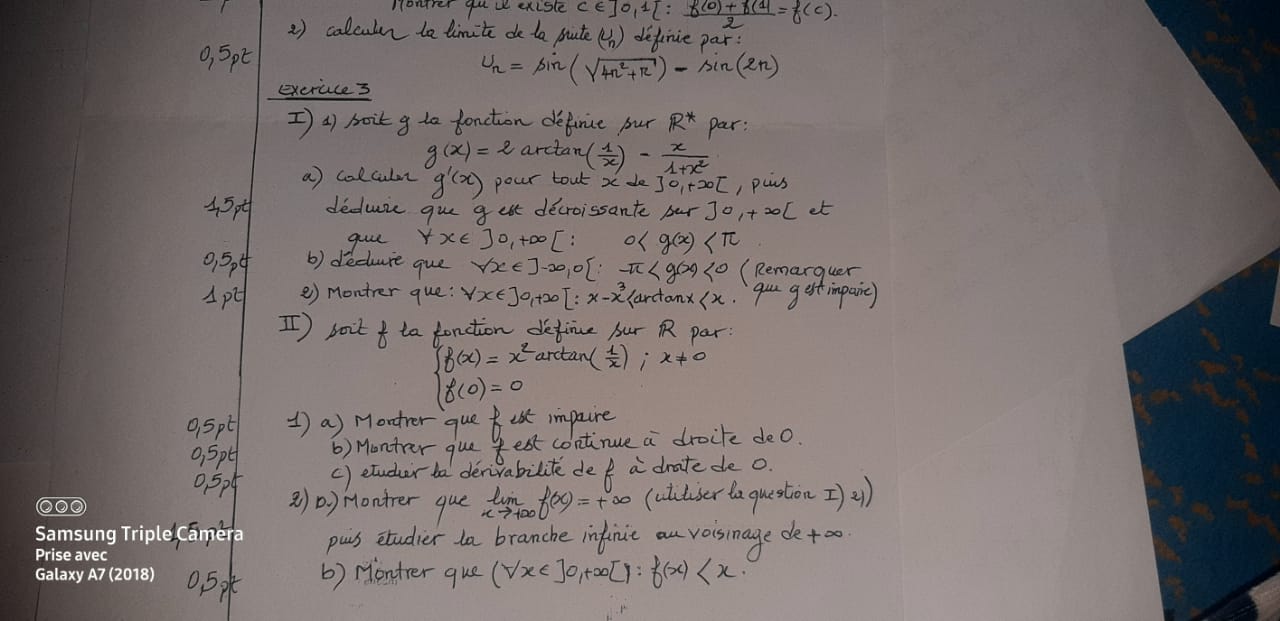 Montrer qu'il existe c ∈ ]0,1[ : (f(0) + f(1))/2 = f(c).
2) calculer la limite de la suite (Un) définie par :
0,5pt
Un = sin(√(4n²+π)) - sin(2n)
Exercice 3
I) 1) soit g la fonction définie sur ℝ* par :
g(x) = 2 arctan(1/x) - x/(1+x²)
a) calculer g'(x) pour tout x de ]0,+∞[, puis
1,5pt déduire que g est décroissante sur ]0,+∞[ et
que ∀x∈]0,+∞[ : 0 < g(x) < π.
0,5pt b) déduire que ∀x∈]-∞,0[ : -π < g(x) < 0 (Remarquer
que g est impaire)
1pt 2) Montrer que : ∀x∈]0,+∞[ : x - x³ < arctanx < x.
II) soit f la fonction définie sur ℝ par :
f(x) = x² arctan(1/x) ; x ≠ 0
f(0) = 0
0,5pt 1) a) Montrer que f est impaire
0,5pt b) Montrer que f est continue à droite de 0.
0,5pt c) etudier la dérivabilité de f à droite de 0.
2) a) Montrer que lim x→+∞ f(x) = +∞ (utiliser la question I) 2))
puis étudier la branche infinie au voisinage de +∞.
0,5pt b) Montrer que (∀x∈]0,+∞[) : f(x) < x.
Samsung Triple Camera
Prise avec
Galaxy A7 (2018)